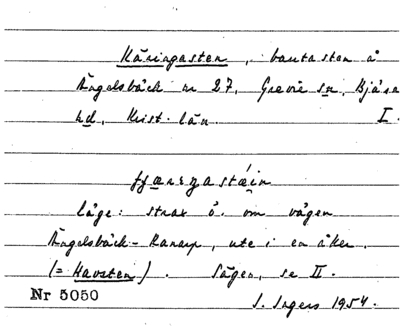 Käringasten, bautasten å
Ängelsbäck nr 27, Grevie sn, Bjäre
hd, Krist. län. I.
läge: strax ö. om vägen
Ängelsbäck-Kararp, ute i en åker.
(= Havsten). Sägen, se II.
Nr 5050
S. Ingers 1954.